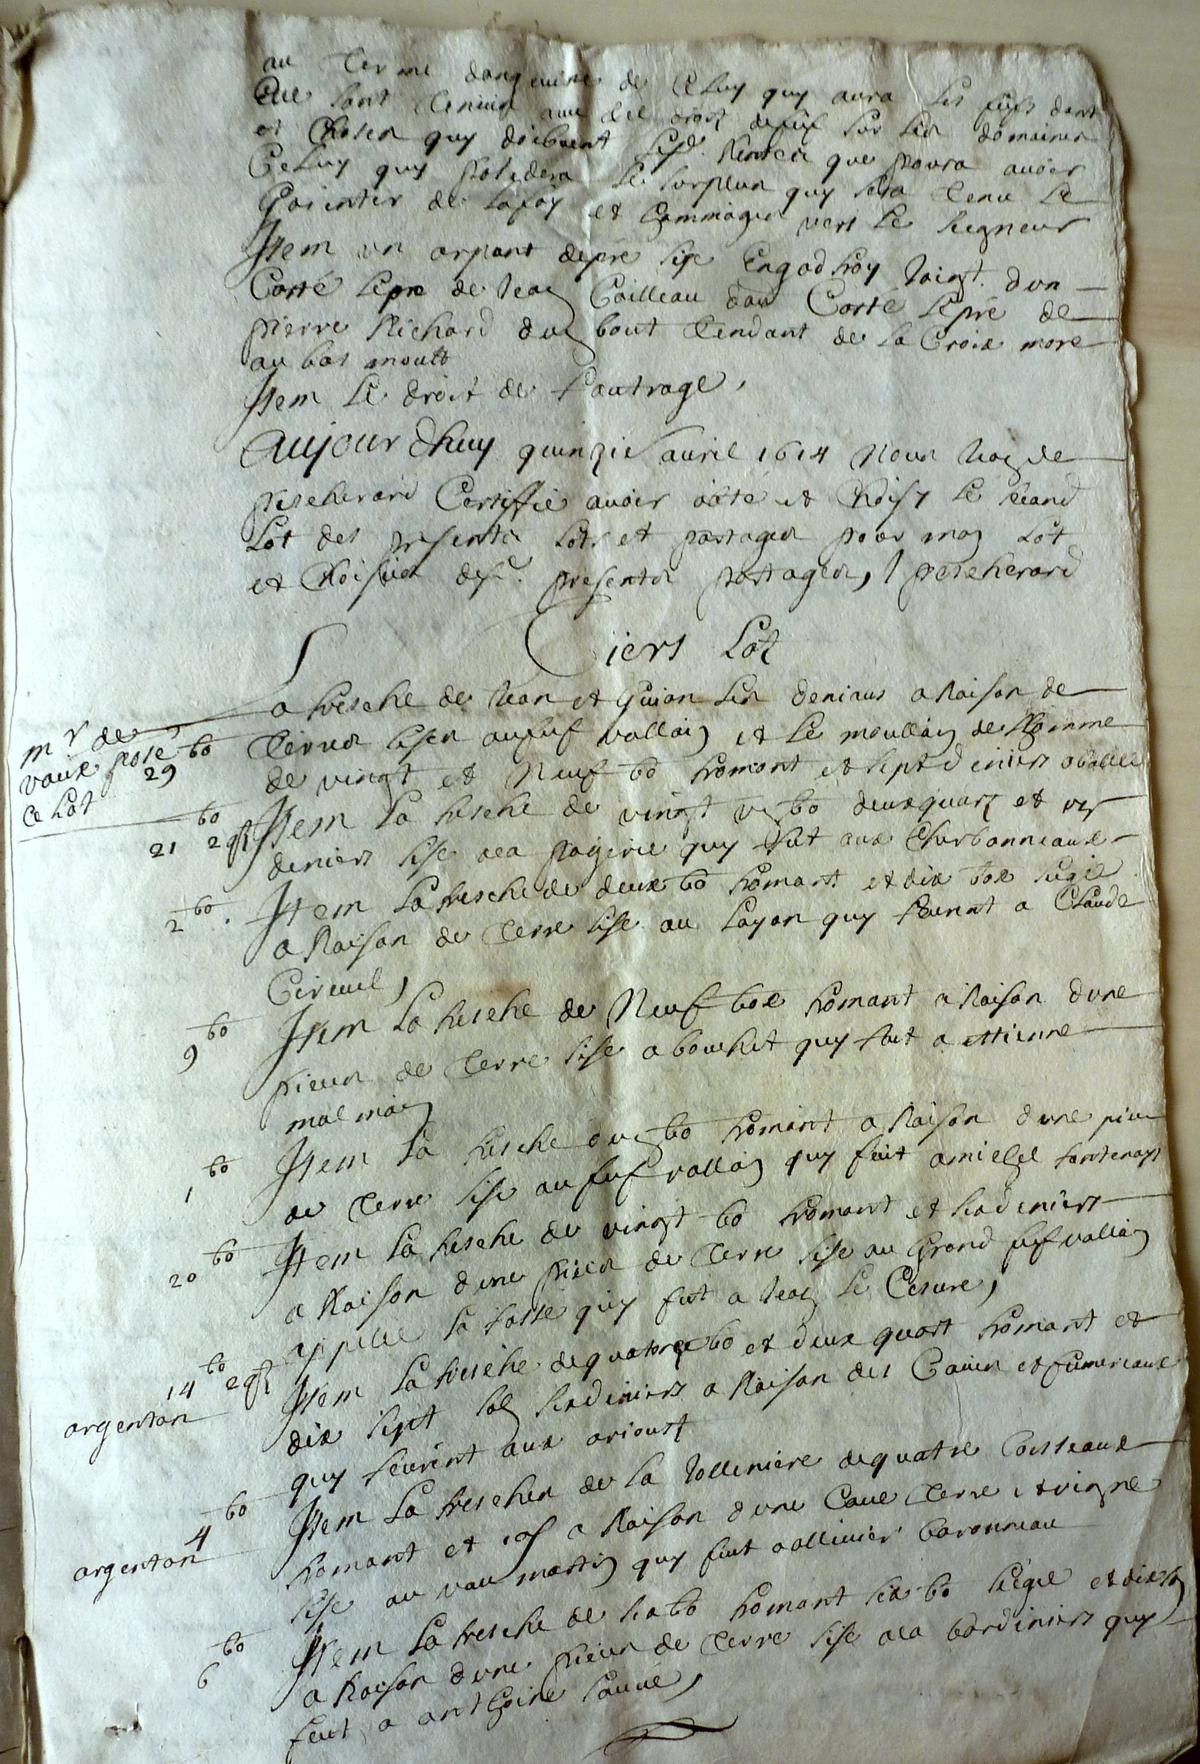 au terme danguine de Celuy quy aura les fiefs dont
Elle sont tenuie aue led droit de fief sur les domaines
et Choses quy doibuent lesd. Rentes que poura auoir
Celuy quy possedera le surplus quy sera tenu le
Garentir de la foy et hommages vers le seigneur
Item un arpant de pré sise Engodhoy Joingt. d'un
Costé le pré de Jean Coilleau dau Costé le pré de
pierre Richard dun bout tendant de la Croix more
au bas moult
Item Le droit de Pautrage,
Aujour d'huy quinzie auril 1614 Nous Jean de
pierherard Certiffie auoir opté et Choisy le second
Lot des presents Lots et partages pour mon Lot
et Choisies desd. presents partages, J pereherard
Tiers Lot
mr de
vaux pose
ce Lot
29 bo
La fresche de Jean et Guion les deniaus a Raison de
terres sises au fief vallain et le moullin de
de vingt et Neuf bo fromant et sept deniers obolle
21 bo 2 qrt
Item La fresche de vingt un bo deux quart et un
deniers sise a la pagerie quy fut aux Charbonneaux
2 bo.
Item La fresche de deux bo fromant et dix box segle
a Raison de terre sise au Layon quy feurent a Claude
Cireuil,
9 bo
Item La fresche de Neuf box fromant a Raison dune
piece de terre sise a bouchet quy fut a ettienne
mal main
1 bo
Item La fresche dun bo fromant a Raison dune piece
de terre sise au fief vallain quy fut a michel fontenays
20 bo
Item La fresche de vingt bo fromant et six deniers
a Raison d'une piece de terre sise au Grand fief vallain
appelle la fosse quy fut a Jean le Cesure,
14 bo 2 qrt
argenton
Item La fresche de quatorze bo et deux quart fromant et
dix sept sols six deniers a Raison des Caues et fumereaux
quy feurent aux orioust
4 bo
argenton
Item La fresches de la Jolliniere de quatre boisseaux
fromant et a Raison d'une Caue terre et vigne
sise au vau martin quy fut a ollivier baronneau
6 bo
Item La fresche de six bo fromant six bo seigle et dix
a Raison d'une piece de terre sise a la bardiniers quy
feut a anthoine sauue,